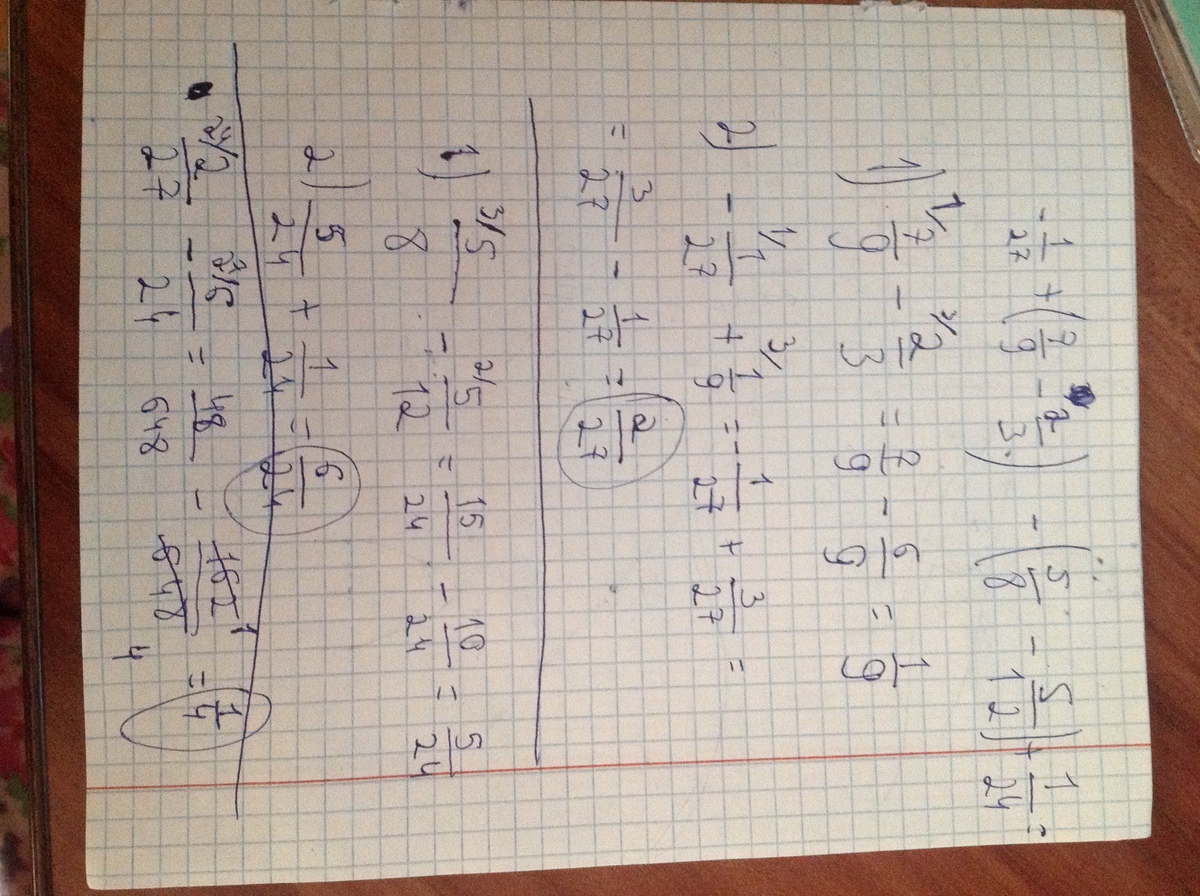 - 1/27 + (7/9 - 2/3) - (5/8 - 5/12) + 1/24 =
1) 1/ 7/9 - 3/ 2/3 = 7/9 - 6/9 = 1/9
2) - 1/ 1/27 + 3/ 1/9 = - 1/27 + 3/27 =
= 3/27 - 1/27 = 2/27
1) 3/ 5/8 - 2/ 5/12 = 15/24 - 10/24 = 5/24
2) 5/24 + 1/24 = 6/24
24/ 2/27 - 27/ 6/24 = 48/648 - 162/648 1 4 = 1/4